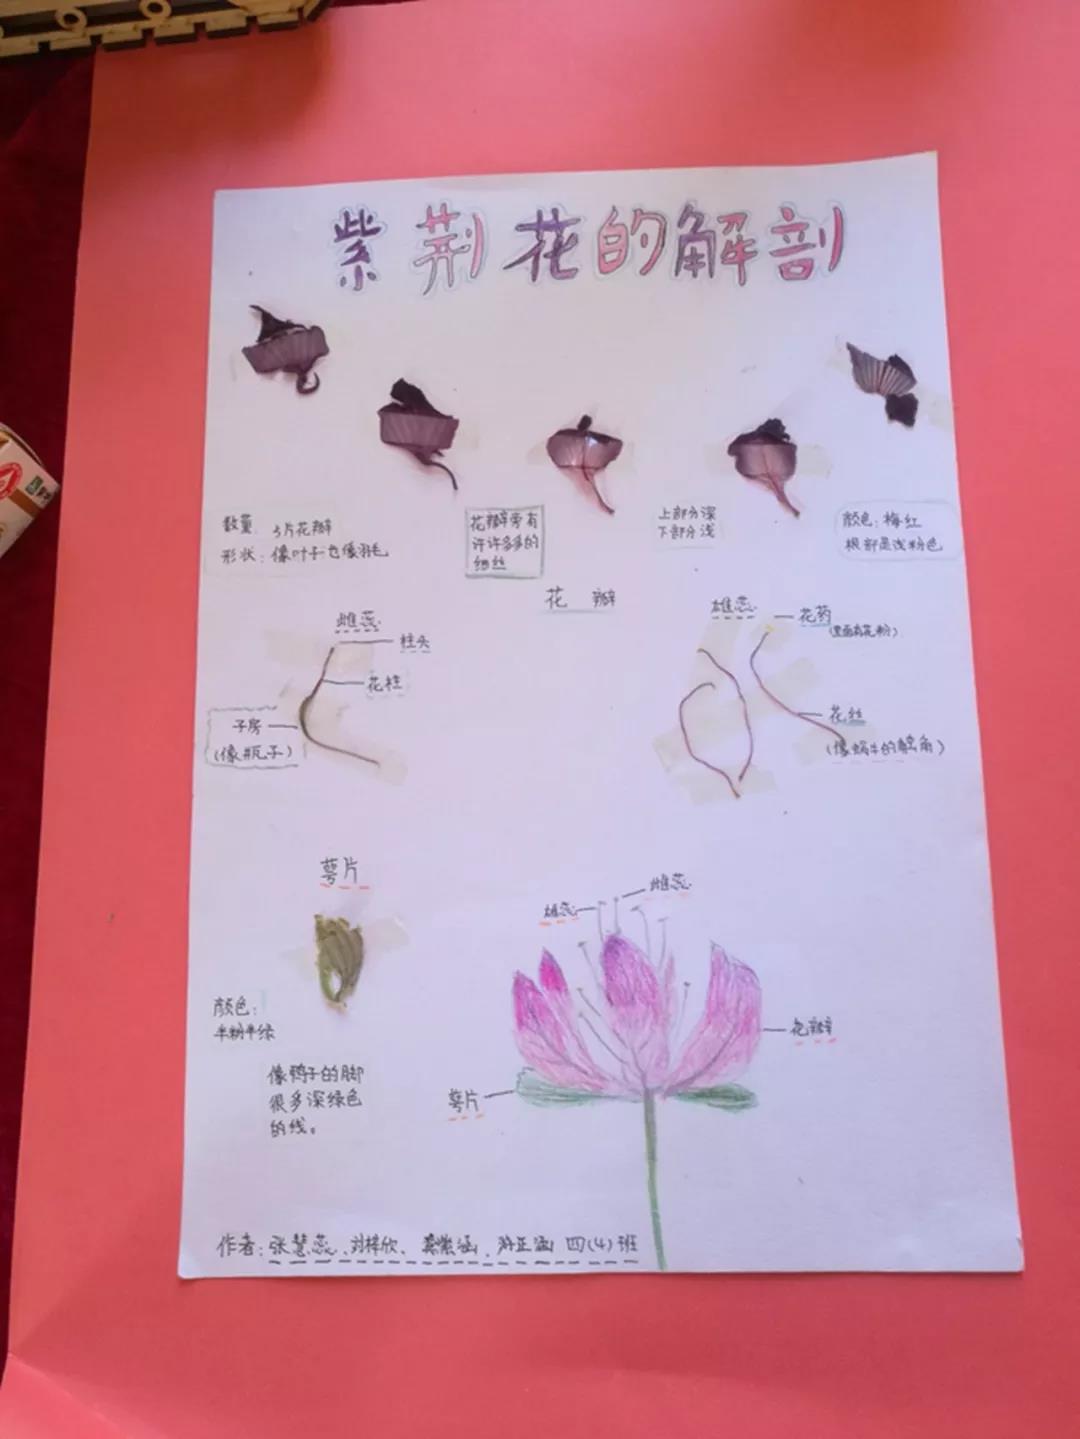 紫荆花的解剖
数量：5片花瓣
形状：像叶子也像羽毛
花瓣旁有
许许多多的
细丝
上部分深
下部分浅
颜色：梅红
根部是浅粉色
花瓣
雌蕊
柱头
花柱
子房
(像瓶子)
雄蕊
花药
(里面有花粉)
花丝
(像蜗牛的触角)
萼片
颜色：
半粉半绿
像鸭子的脚
很多深绿色
的线。
雌蕊
雄蕊
花瓣
萼片
作者：张慧蕊、刘梓欣、龚紫涵、孙正涵 四(4)班